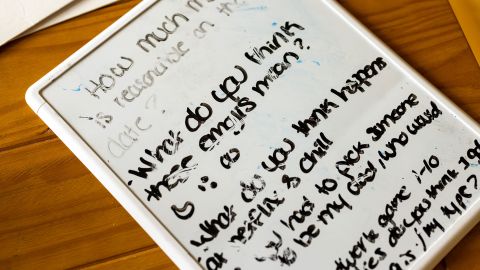 How much m
is reasonable on the
date?
. What do you think
these emojis mean?
. What do you think happens
at netflix & chill
you had to pick someone
to be my date, who would
game 1-10
do you think
is my type?